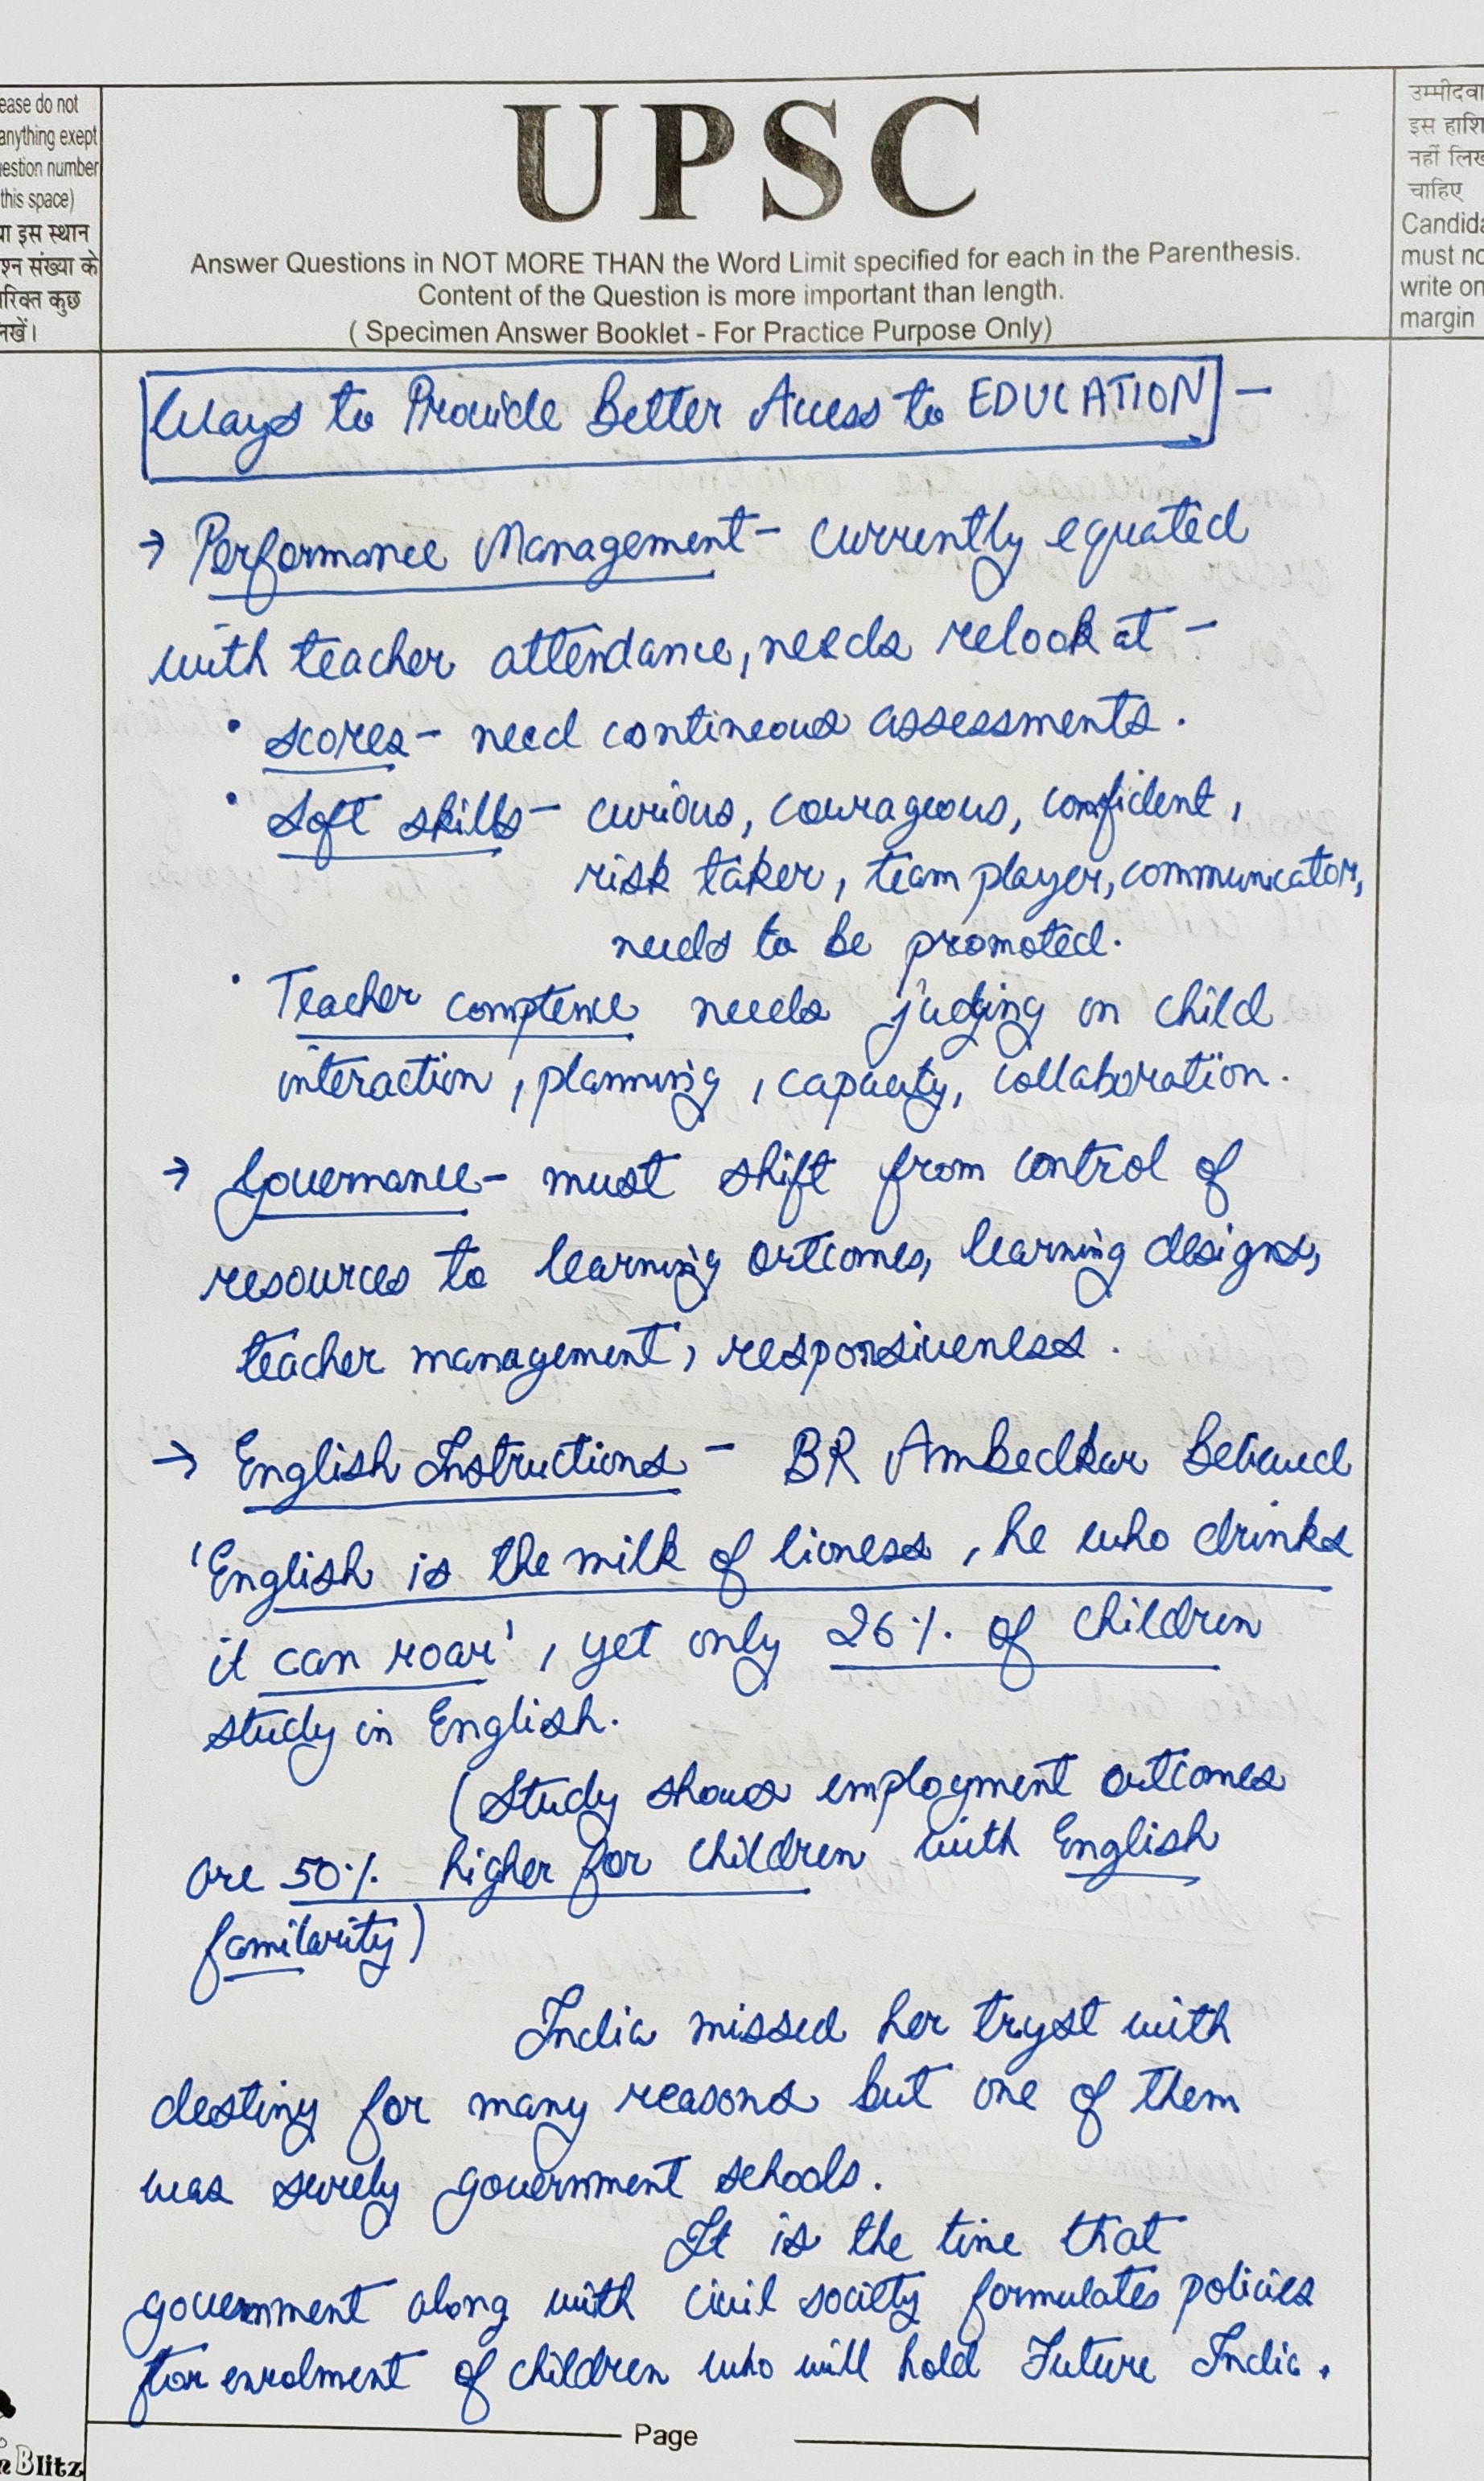 ease do not
anything exept
estion number
this space)
ा इस स्थान
श्न संख्या के
रिक्त कुछ
लिखें।
UPSC
Answer Questions in NOT MORE THAN the Word Limit specified for each in the Parenthesis.
Content of the Question is more important than length.
( Specimen Answer Booklet - For Practice Purpose Only)
उम्मीदवा
इस हाशि
नहीं लिख
चाहिए
Candida
must no
write on
margin
Ways to Provide Better Access to EDUCATION -
→ Performance Management - currently equated
with teacher attendance, needs relook at -
• scores - need contineous assessments.
• Soft skills - curious, courageous, confident,
risk taker, team player, communicator,
needs to be promoted.
• Teacher comptence needs judging on child
interaction, planning, capacity, collaboration.
→ Governance - must shift from control of
resources to learning outcomes, learning designs,
teacher management, responsiveness.
→ English Instructions - BR Ambedkar Believed
'English is the milk of lioness, he who drinks
it can roar', yet only 26% of children
study in English.
(Study shows employment outcomes
are 50% higher for children with English
familarity)
India missed her tryst with
destiny for many reasons but one of them
was surely government schools.
It is the time that
government along with civil society formulates policies
for enrolment of children who will hold Future India.
Page
Blitz